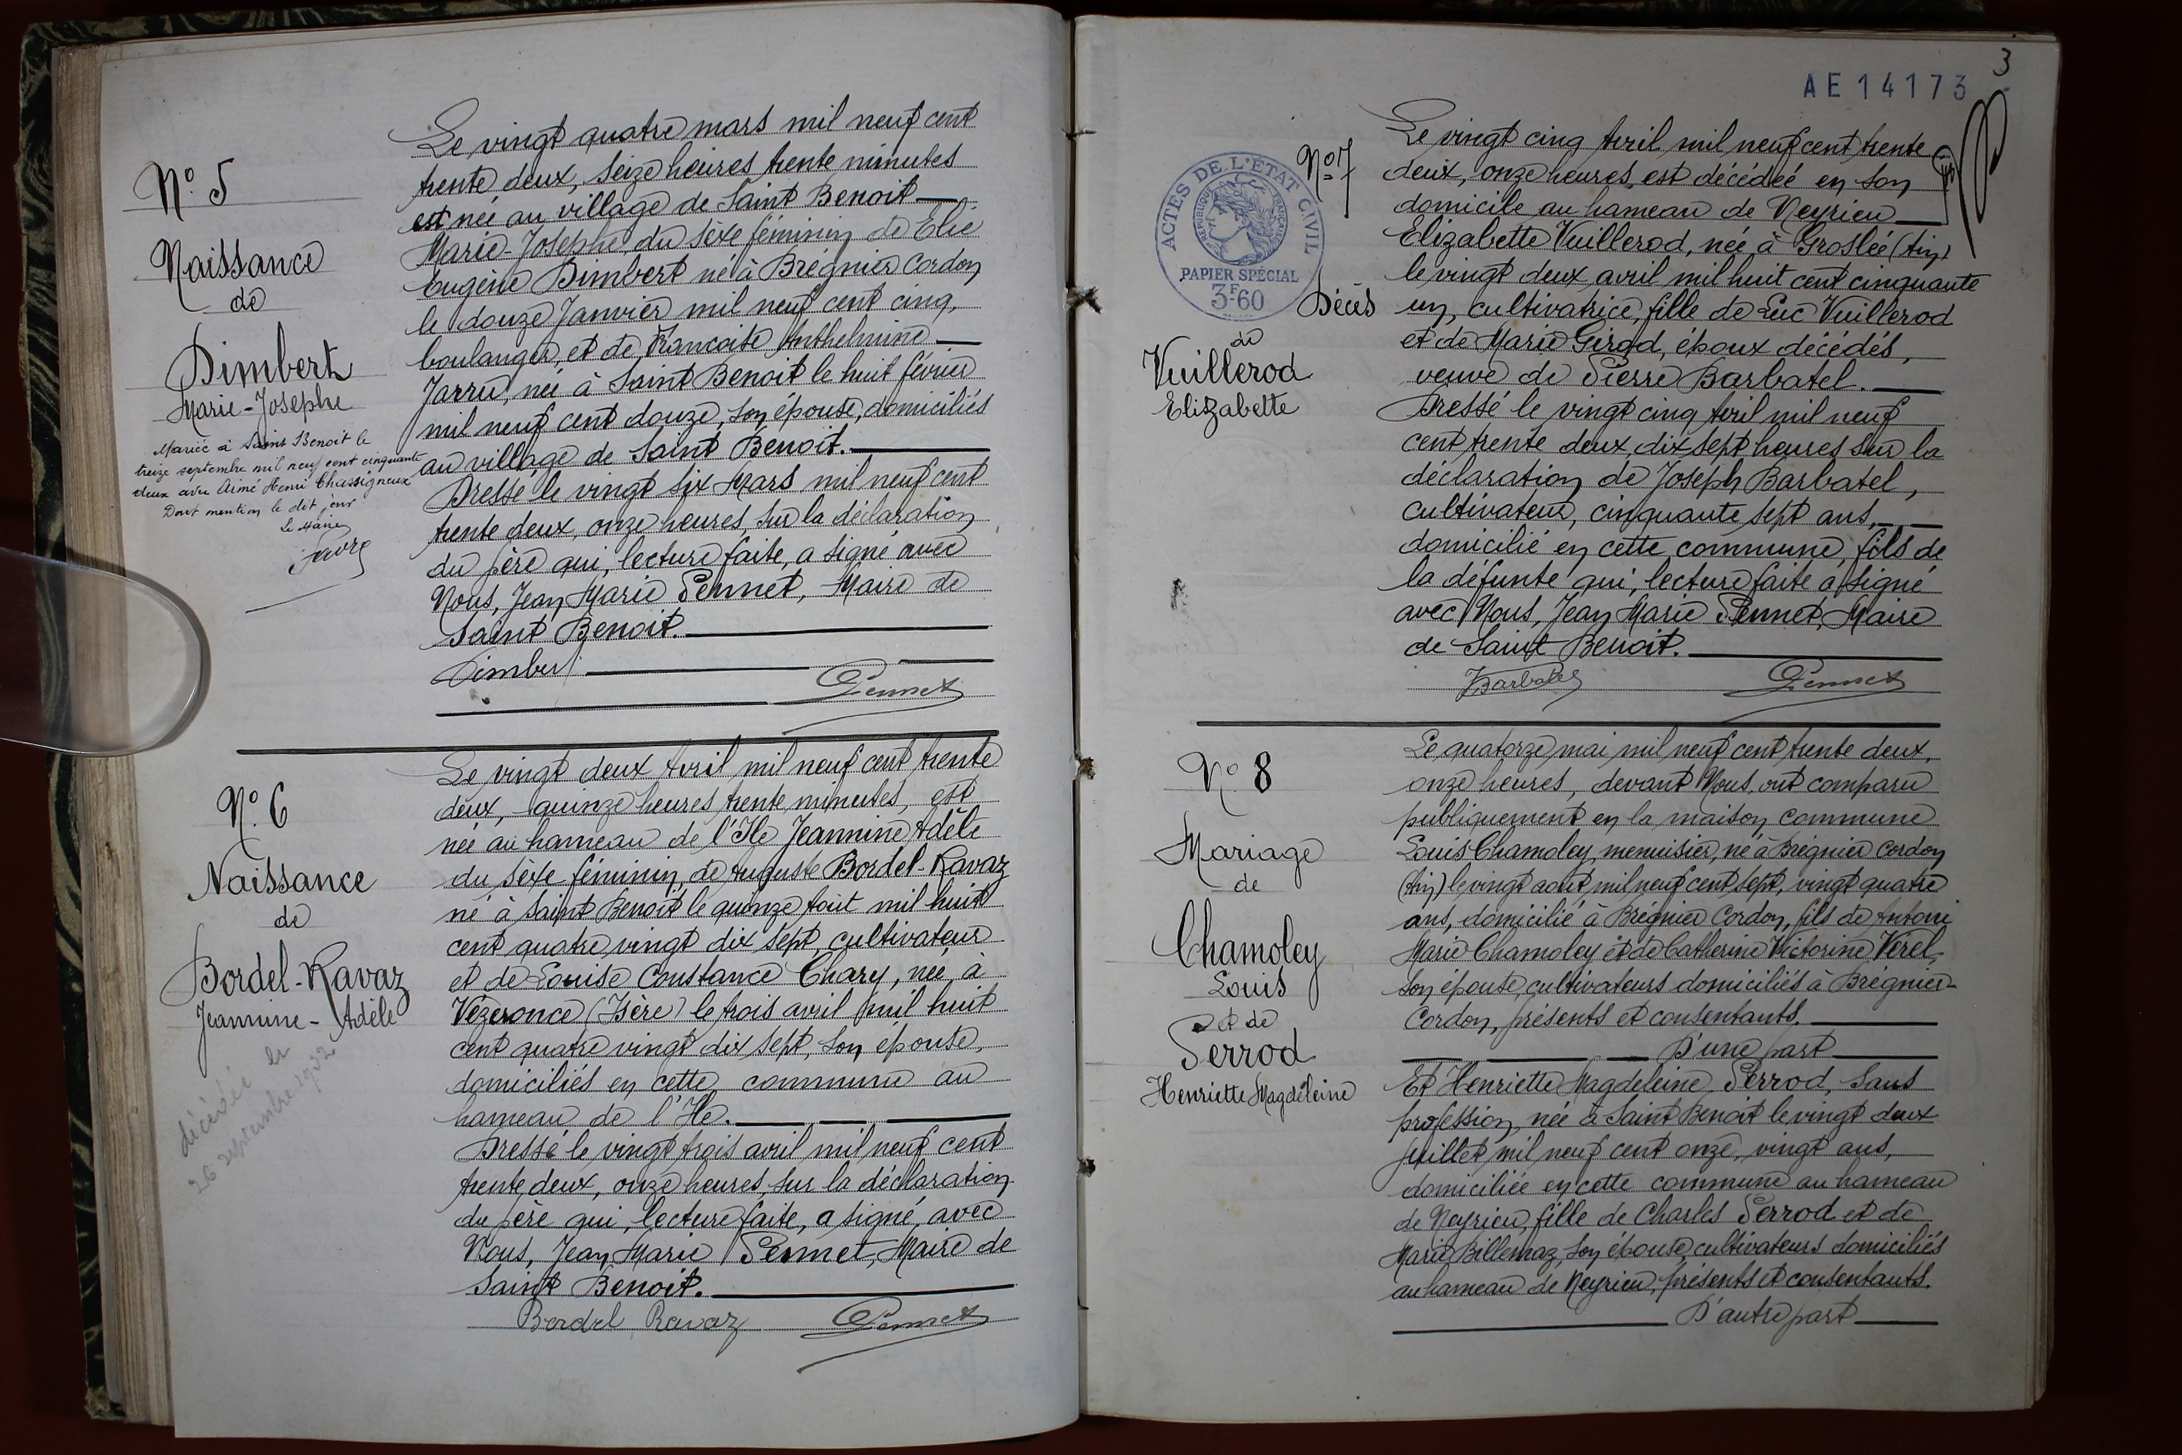 N° 5
Naissance
de
Dimbert
Marie-Josephe
Mariée à Saint Benoit le
treize septembre mil neuf cent cinquante
deux avec Aimé Henri Chassigneux
Dont mention le dit jour
Le Maire
Favre
Le vingt quatre mars mil neuf cent
trente deux, seize heures trente minutes
est née au village de Saint Benoit
Marie-Josephe, du sexe féminin de Elie
Eugène Dimbert né à Brégnier Cordon
le douze Janvier mil neuf cent cinq,
boulanger, et de Francoise Anthelmine
Jarru, née à Saint Benoit le huit février
mil neuf cent douze, son épouse, domiciliés
au village de Saint Benoit.
Dressé le vingt six Mars mil neuf cent
trente deux, onze heures, sur la déclaration
du père qui, lecture faite, a signé avec
Nous, Jean Marie Pennet, Maire de
Saint Benoit.
Dimbert
Pennet
N° 6
Naissance
de
Bordel-Ravaz
Jeannine-Adèle
décédée le
26 septembre 1932
Le vingt deux Avril mil neuf cent trente
deux, quinze heures trente minutes, est
née au hameau de l'Ile Jeannine Adèle
du sexe féminin, de Auguste Bordel-Ravaz
né à Saint Benoit le quinze Aout mil huit
cent quatre vingt dix sept, cultivateur
et de Louise Constance Chary, née à
Vézeronce (Isère) le trois avril mil huit
cent quatre vingt dix sept, son épouse,
domiciliés en cette commune au
hameau de l'Ile.
Dressé le vingt trois avril mil neuf cent
trente deux, onze heures, sur la déclaration
du père qui, lecture faite, a signé, avec
Nous, Jean Marie Pennet, Maire de
Saint Benoit.
Bordel Ravaz
Pennet
3
AE 14173
ACTES DE L'ÉTAT CIVIL
RÉPUBLIQUE FRANÇAISE
PAPIER SPÉCIAL
3F.60
N° 7
Décès
de
Vuillerod
Elizabette
Le vingt cinq Avril mil neuf cent trente
deux, onze heures, est décédée en son
domicile au hameau de Neyrieu
Elizabette Vuillerod, née à Groslée (Ain)
le vingt deux avril mil huit cent cinquante
un, cultivatrice, fille de Luc Vuillerod
et de Marie Girod, époux décédés,
veuve de Pierre Barbatel.
Dressé le vingt cinq Avril mil neuf
cent trente deux, dix sept heures sur la
déclaration de Joseph Barbatel,
cultivateur, cinquante sept ans,
domicilié en cette commune, fils de
la défunte qui, lecture faite a signé
avec Nous, Jean Marie Pennet, Maire
de Saint Benoit.
Barbatel
Pennet
N° 8
Mariage
de
Chamoley
Louis
et de
Perrod
Henriette Magdeleine
Le quatorze mai mil neuf cent trente deux,
onze heures, devant Nous, ont comparu
publiquement en la maison commune
Louis Chamoley, menuisier, né à Brégnier Cordon
(Ain) le vingt aout mil neuf cent sept, vingt quatre
ans, domicilié à Brégnier Cordon, fils de Antoine
Marie Chamoley et de Catherine Victorine Verel,
son épouse, cultivateurs domiciliés à Brégnier-
Cordon, présents et consentants.
D'une part
Et Henriette Magdeleine Perrod, sans
profession, née à Saint Benoit le vingt deux
Juillet mil neuf cent onze, vingt ans,
domiciliée en cette commune au hameau
de Neyrieu, fille de Charles Perrod et de
Marie Billemaz, son épouse, cultivateurs domiciliés
au hameau de Neyrieu, présents et consentants.
D'autre part